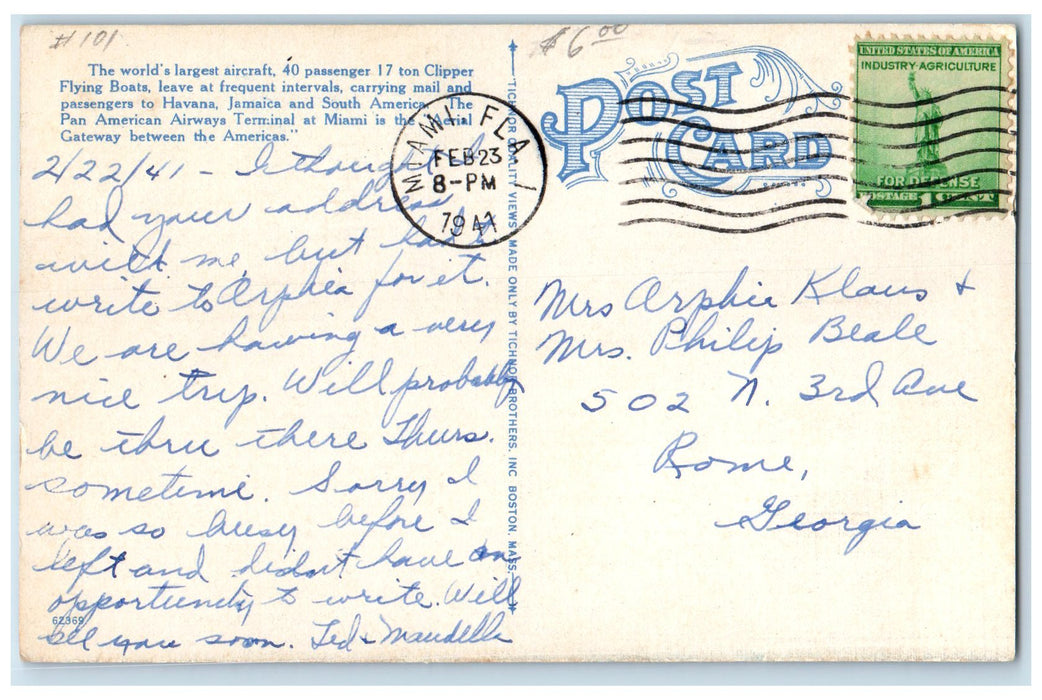 # 101
$6.00
The world's largest aircraft, 40 passenger 17 ton Clipper
Flying Boats, leave at frequent intervals, carrying mail and
passengers to Havana, Jamaica and South America. The
Pan American Airways Terminal at Miami is the "Aerial
Gateway between the Americas."
2/22/41 - I thought I
had your address
with me, but had to
write to Orphia for it.
We are having a very
nice trip. Will probably
be thru there Thurs.
sometime. Sorry I
was so busy before I
left and didn't have an
opportunity to write. Will
see you soon. Ted & Maudella
62369
TICHNOR QUALITY VIEWS MADE ONLY BY TICHNOR BROTHERS, INC. BOSTON, MASS.
MIAMI, FLA.
FEB 23
8-PM
1941
POST
CARD
UNITED STATES OF AMERICA
INDUSTRY·AGRICULTURE
FOR DEFENSE
POSTAGE 1
Mrs Orphia Klaus &
Mrs. Philip Beale
502 N. 3rd Ave
Rome,
Georgia